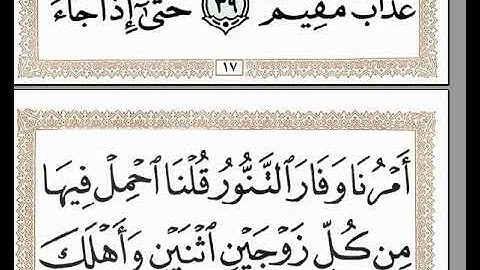 عَذَابٌ مُّقِيمٌ ٣٩ حَتَّىٰٓ إِذَا جَآءَ
١٧
أَمۡرُنَا وَفَارَ ٱلتَّنُّورُ قُلۡنَا ٱحۡمِلۡ فِيهَا
مِن كُلِّ زَوۡجَيۡنِ ٱثۡنَيۡنِ وَأَهۡلَكَ